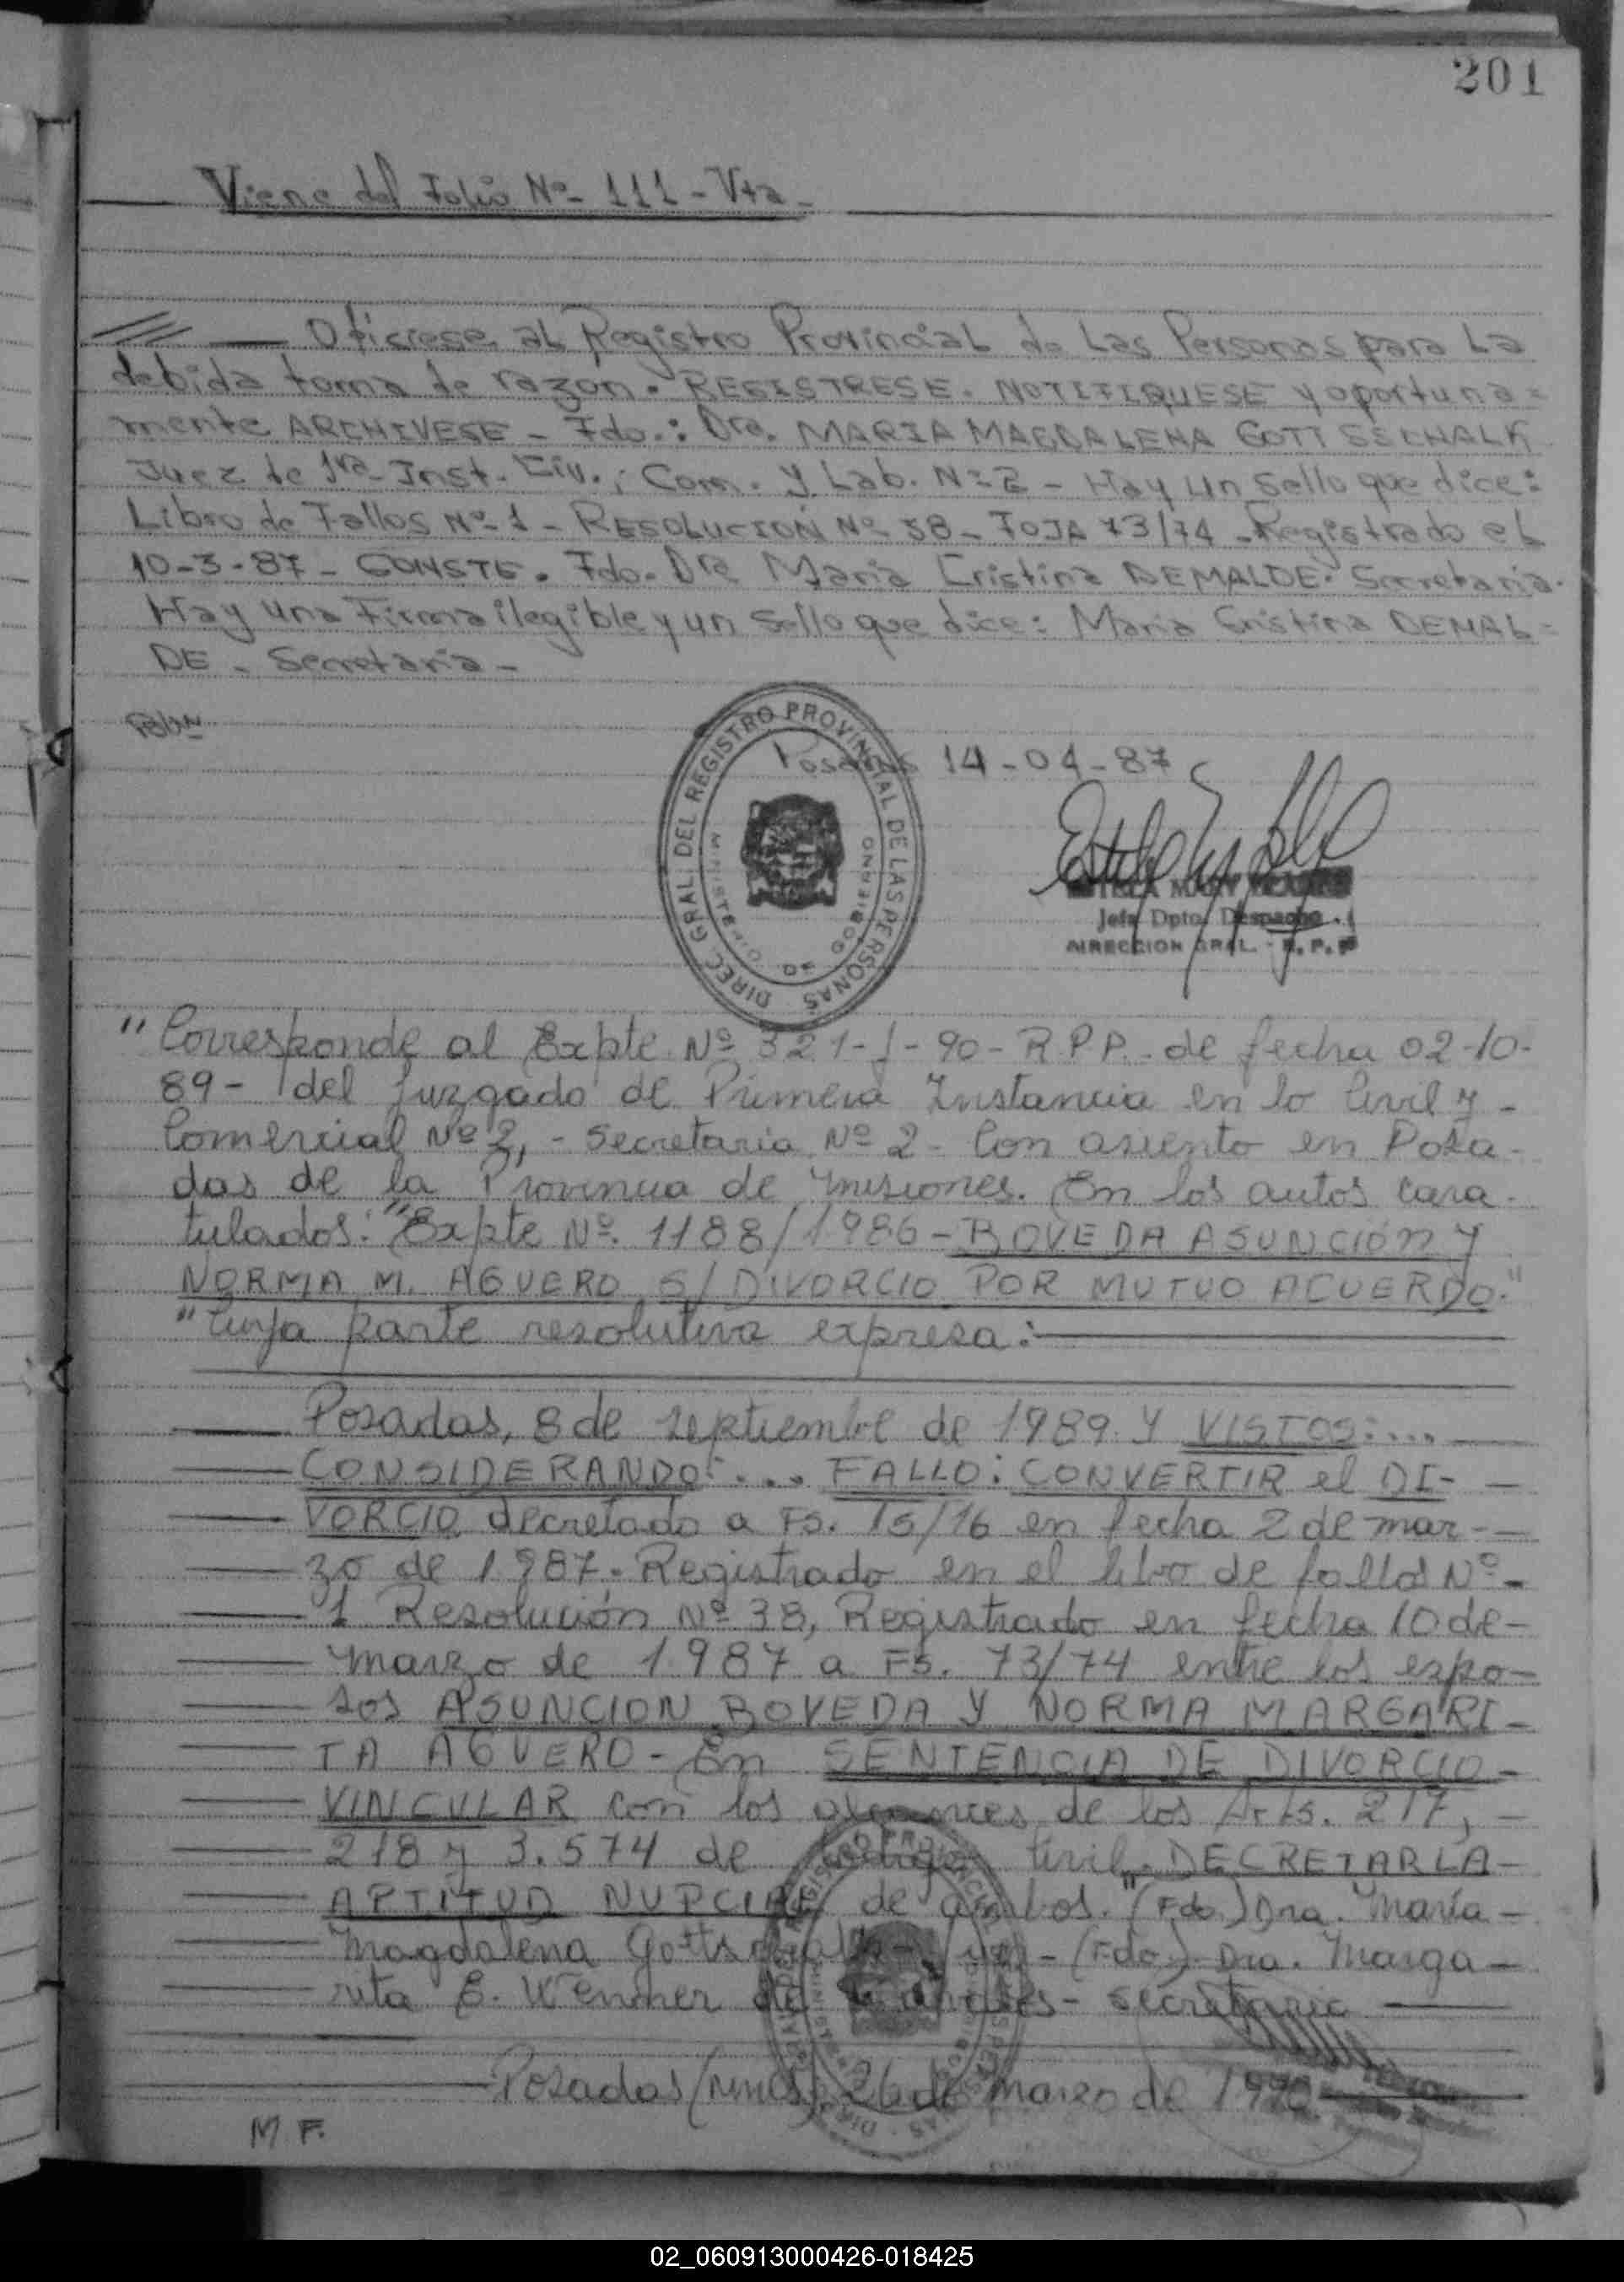 201
Viene del Folio Nº 111 - Vta -
Ofíciese al Registro Provincial de Las Personas para La
debida toma de razón. REGISTRESE. NOTIFIQUESE y oportuna=
mente ARCHIVESE - Fdo.: Dra. MARIA MAGDALENA GOTTSSCHALK
Juez de 1ra Inst. Civ.; Com. y Lab. Nº 2 - Hay un Sello que dice:
Libro de Fallos Nº 1 - RESOLUCION Nº 38 - FOJA 73/74 - Registrado el
10-3-87 - CONSTE. Fdo. Dra Maria Cristina DEMALDE. Secretaria.
Hay una Firma ilegible y un Sello que dice: Maria Cristina DEMAL=
DE - Secretaria -
Posadas 14-04-87
DIREC. GRAL. DEL REGISTRO PROVINCIAL DE LAS PERSONAS
MINISTERIO DE GOBIERNO
Jefa Dpto. Despacho
DIRECCION GRAL. - R. P. P.
"Corresponde al Expte Nº 321-J-90-R.P.P. de fecha 02-10-
89- del Juzgado de Primera Instancia en lo Civil y -
Comercial Nº 2, - Secretaria Nº 2 - Con asiento en Posa-
das de la Provincia de Misiones. En los autos cara-
tulados: "Expte Nº. 1188/1986 - BOVEDA ASUNCIÓN Y
NORMA M. AGUERO S/ DIVORCIO POR MUTUO ACUERDO."
"Cuya parte resolutiva expresa:
Posadas, 8 de septiembre de 1989. Y VISTOS:....
CONSIDERANDO:.... FALLO: CONVERTIR el DI-
VORCIO decretado a Fs. 15/16 en fecha 2 de mar-
zo de 1987. Registrado en el libro de fallos Nº-
1 Resolución Nº 38, Registrado en fecha 10 de-
marzo de 1987 a Fs. 73/74 entre los espo-
sos ASUNCION BOVEDA Y NORMA MARGARI-
TA AGUERO - En SENTENCIA DE DIVORCIO-
VINCULAR con los alcances de los Arts. 217, -
218 y 3.574 de Codigo Civil. DECRETAR LA-
APTITUD NUPCIAL de ambos." (Fdo.) Dra. María-
Magdalena Gottschalk - Juez - (Fdo.) Dra. Marga-
rita E. Wenner de - Secretaria
Posadas (Mnes), 26 de marzo de 1990.
M F.
02_060913000426-018425